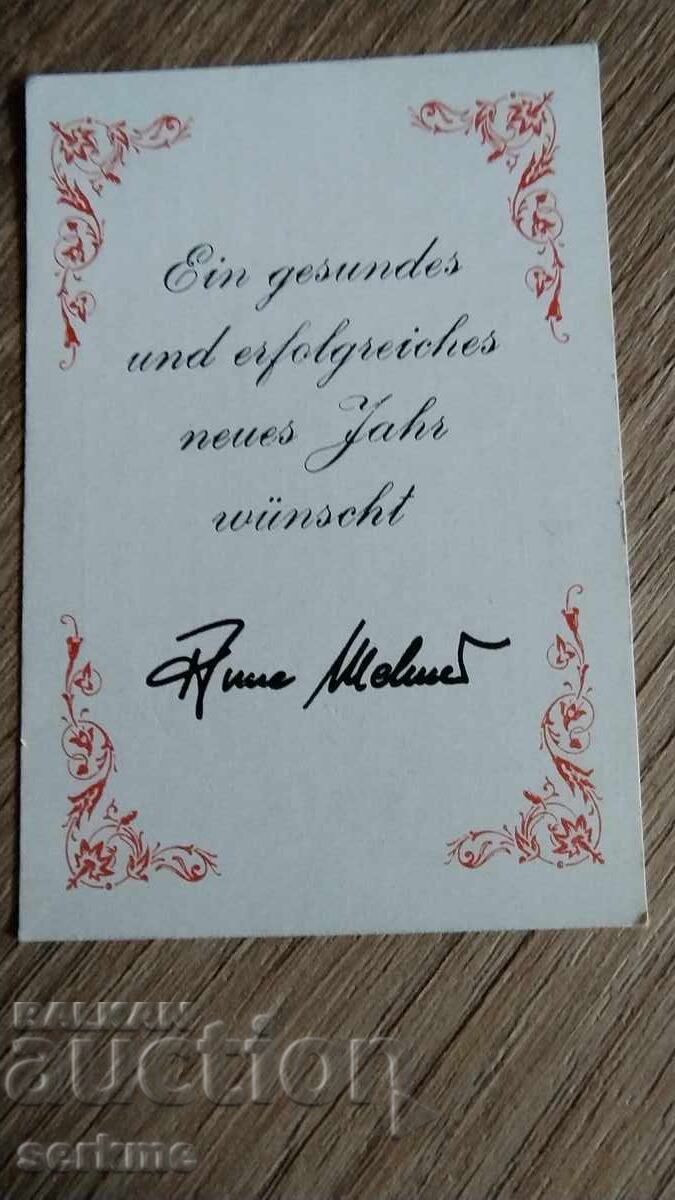 Ein gesundes
und erfolgreiches
neues Jahr
wünscht
BALKAN
auction
serkme